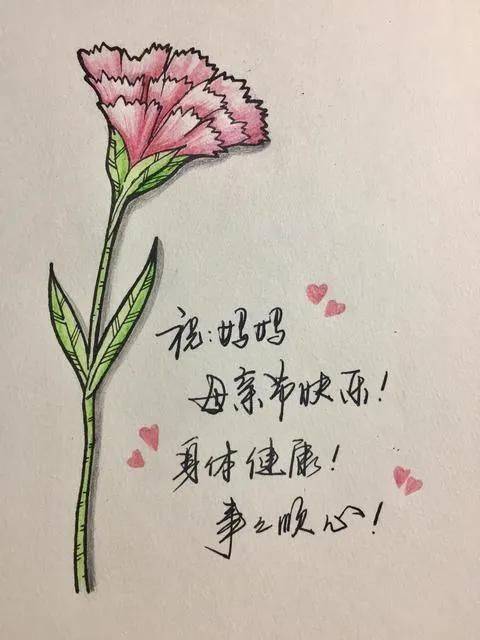 祝:妈妈
母亲节快乐!
身体健康!
事之顺心!